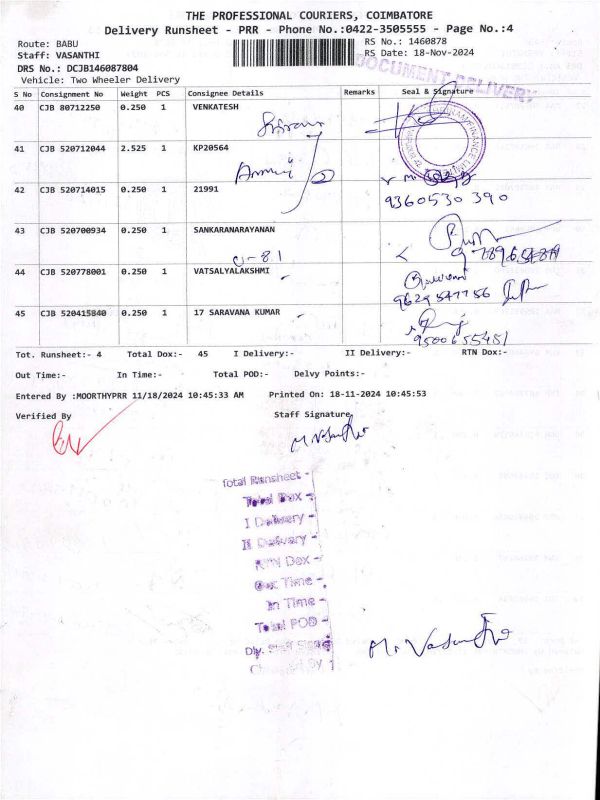 THE PROFESSIONAL COURIERS, COIMBATORE
Delivery Runsheet - PRR - Phone No.:0422-3505555 - Page No.:4
Route: BABU
Staff: VASANTHI
DRS No.: DCJB146087804
Vehicle: Two Wheeler Delivery
RS No.: 1460878
RS Date: 18-Nov-2024
DOCUMENT DELIVERY
S No Consignment No Weight PCS Consignee Details Remarks Seal & Signature
40 CJB 80712250 0.250 1 VENKATESH
41 CJB 520712044 2.525 1 KP20564
42 CJB 520714015 0.250 1 21991
9360530 390
43 CJB 520700934 0.250 1 SANKARANARAYANAN
44 CJB 520778001 0.250 1 VATSALYALAKSHMI
9629547756
45 CJB 520415840 0.250 1 17 SARAVANA KUMAR
9500655451
Tot. Runsheet:- 4 Total Dox:- 45 I Delivery:- II Delivery:- RTN Dox:-
Out Time:- In Time:- Total POD:- Delvy Points:-
Entered By :MOORTHYPRR 11/18/2024 10:45:33 AM Printed On: 18-11-2024 10:45:53
Verified By Staff Signature
Total Runsheet -
Total Dox -
I Delivery -
II Delivery -
RTN Dox -
Out Time -
In Time -
Total POD -